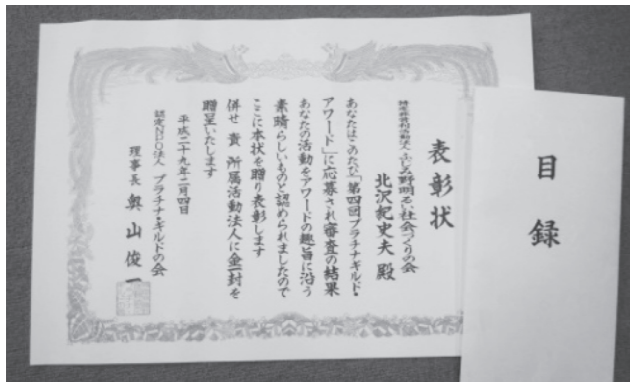 表彰状
特定非営利活動法人 ふじみ野明るい社会づくりの会
北沢紀史夫 殿
あなたはこのたび「第四回プラチナ・ギルド・
アワード」に応募され審査の結果
あなたの活動をアワードの趣旨に沿う
素晴らしいものと認められましたので
ここに本状を贈り表彰します
併せ 貴 所属活動法人に金一封を
贈呈いたします
平成二十九年二月四日
認定NPO法人 プラチナ・ギルドの会
理事長 奥山俊一
目録